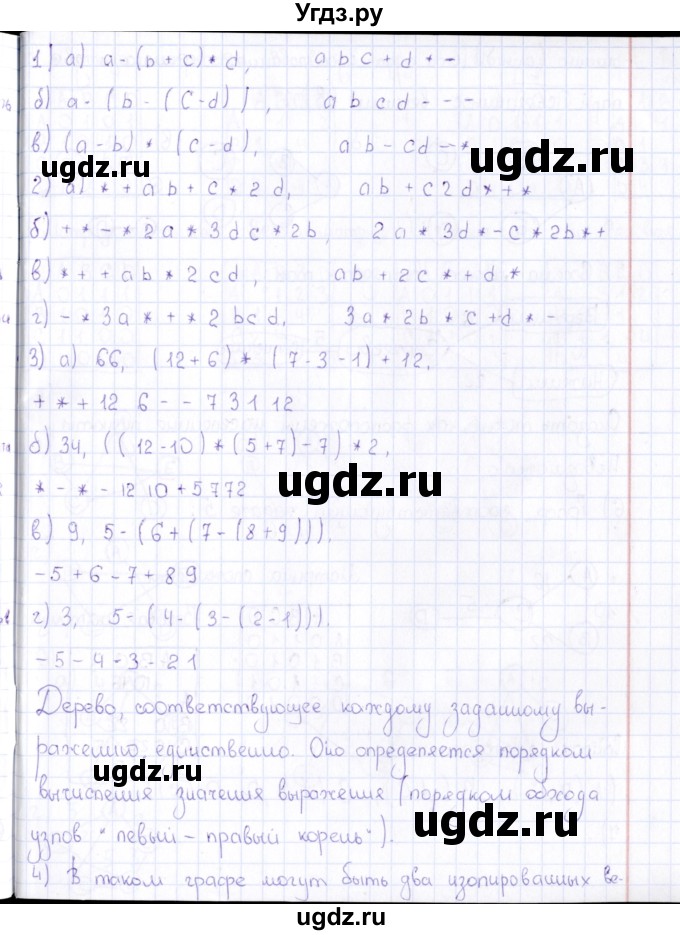 Угдз.ру
1) а) a-(b+c)*d,    abc+d*-
б) a-(b-(c-d)),    abcd---
в) (a-b)*(c-d),    ab-cd-*
ugdz.ru
ugdz.ru
2) а) *+ab+c*2d,    ab+c2d*+*
б) +*-*2a*3dc*2b,    2a*3d*-c*2b*+
в) *++ab*2cd,    ab+2c*+d*
г) -*3a*+*2bcd,    3a*2b*c+d*-
ugdz.ru
3) а) 66, (12+6)*(7-3-1)+12.
+*+12 6--7 3 1 12
б) 34, ((12-10)*(5+7)-7)*2,
ugdz.ru
*-*-12 10+5 7 7 2
в) 9, 5-(6+(7-(8+9))).
-5+6-7+8 9
г) 3, 5-(4-(3-(2-1))).
-5-4-3-2 1
Дерево, соответствующее каждому заданному вы-
ражению, единственно. Оно определяется порядком
ugdz.ru
вычисления значения выражения (порядком обхода
ugdz.ru
узлов "левый - правый корень").
4) В таком графе могут быть два изолированных ве-
ugdz.ru